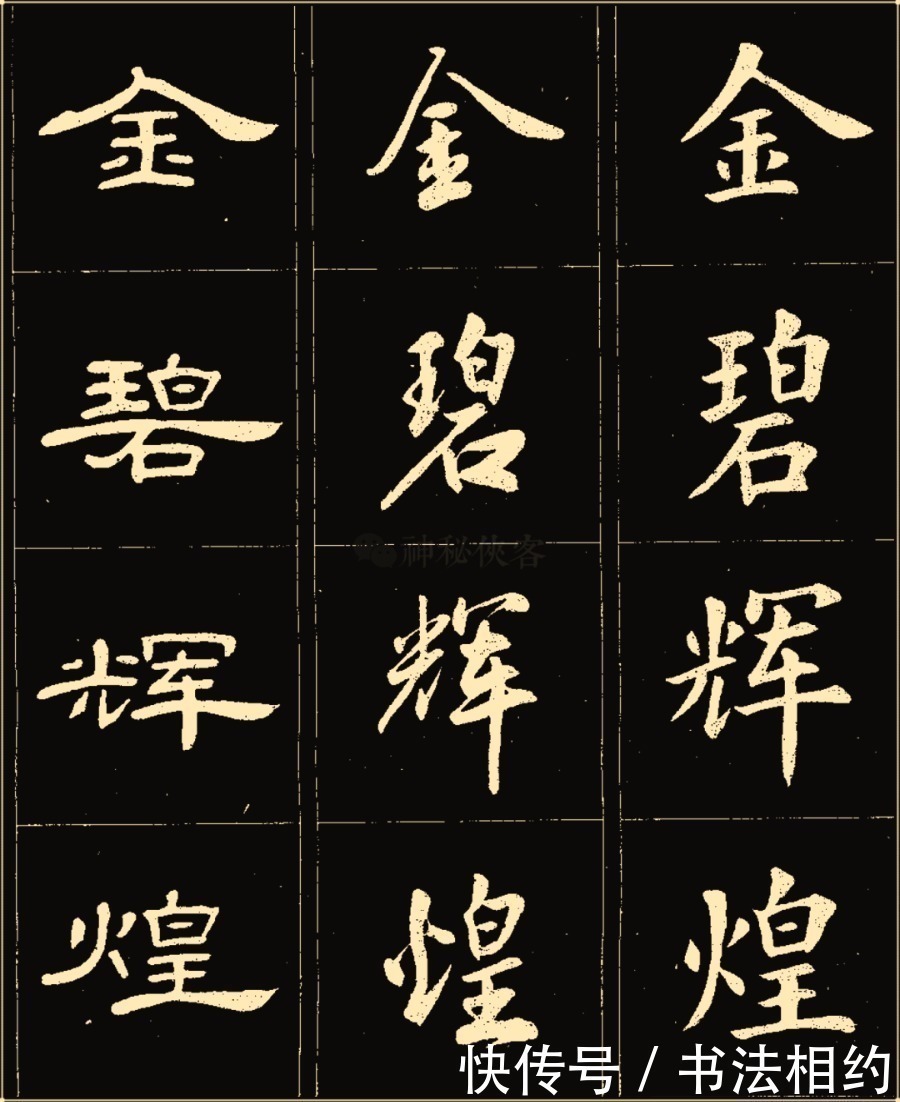 金 金 金
碧 碧 碧
辉 辉 辉
煌 煌 煌
神秘侠客
快传号 / 书法相约